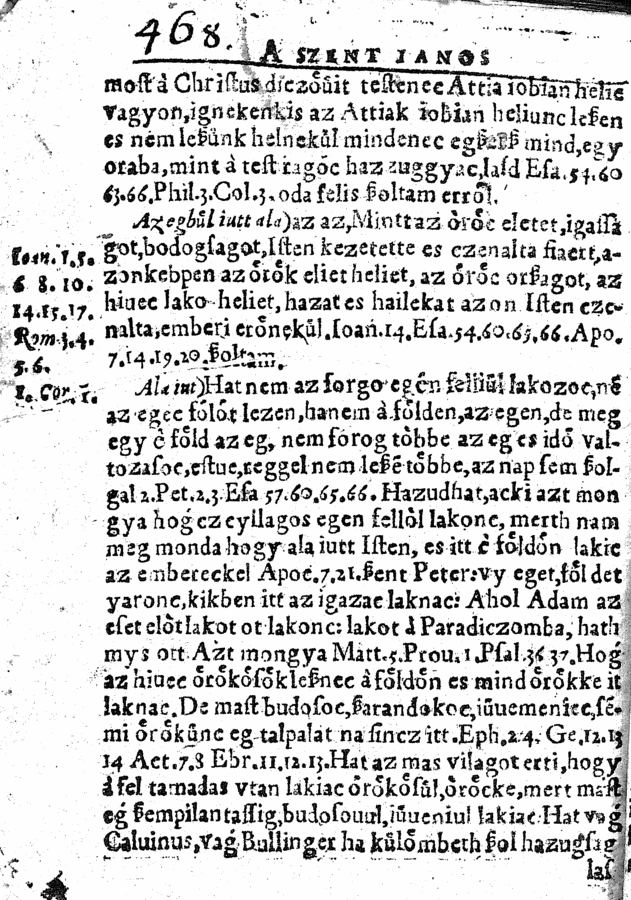 468.
A SZENT IANOS
most à Christus diczo̊uit testenec Attia iobian helie
vagyon, ignekenkis az Attiak iobian heliunc leßen
es nem leßünk helnekül mindenec egßerß mind, egy
oraba, mint à test ragoc haz zuggyac, lasd Esa. 54.60
63.66. Phil.3. Col.3. oda felis ßoltam erro̊l.
Az egbůl iutt ala) az az, Mintt az o̊ro̊c eletet, igassa
got, bodogsagot, Isten kezetette es czenalta fiaert, a-
zonkebpen az o̊ro̊k eliet heliet, az o̊ro̊c orßagot, az
hiuec lako heliet, hazat es hailekat az on Isten cze-
nalta, emberi ero̊nekůl. Ioan. 14. Esa. 54.60.65.66. Apo.
7.14.19.20. ßoltam.
Ioan. 1. 5.
6 8. 10.
14.15.17.
Rom. 3. 4.
5. 6.
1. Cor. 1.
Ala iut) Hat nem az forgo egēn felliůl lakozoc, nē
az egec fo̊lo̊t lezen, hanem à fo̊lden, az egen, de meg
egy è fo̊ld az eg, nem forog to̊bbe az eg es ido̊ val-
tozasoc, estue, reggel nem leßē to̊bbe, az nap sem ßol-
gal 2. Pet. 2.3. Esa 57.60.65.66. Hazudhat, acki azt mon
gya hog̀ ez cyllagos egen fello̊l lakonc, merth nam
meg monda hogy ala iutt Isten, es itt è fo̊ldo̊n lakic
az embereckel Apoc. 7.21. ßent Peter: vy eget, fo̊ldet
yaronc, kikben itt az igazac laknac: Ahol Adam az
eset elo̊t lakot ot lakonc: lakot à Paradiczomba, hath
mys ott Azt mongya Matt. 5. Prou. 1. Psal. 36 37. Hog̀
àz hiuec o̊ro̊ko̊so̊k leßnec à fo̊ldo̊n es mind o̊ro̊kke it
laknac. De mast budosoc, ßarandokoc, iůuemeniec, sē-
mi o̊ro̊ků̊nc eg talpalat na sincz itt. Eph. 2.4. Ge. 12.13
14 Act. 7.8 Ebr. 11.12.13. Hat az mas vilagot erti, hogy
à fel tamadas vtan lakiac o̊ro̊ko̊sůl, o̊ro̊cke, mert mast
eg̀ ßempilantassig, budosouul, iůueniul lakiac Hat vag̀
Caluinus, vag̀ Bullinger ha kůlo̊mbeth ßol hazugsag
las